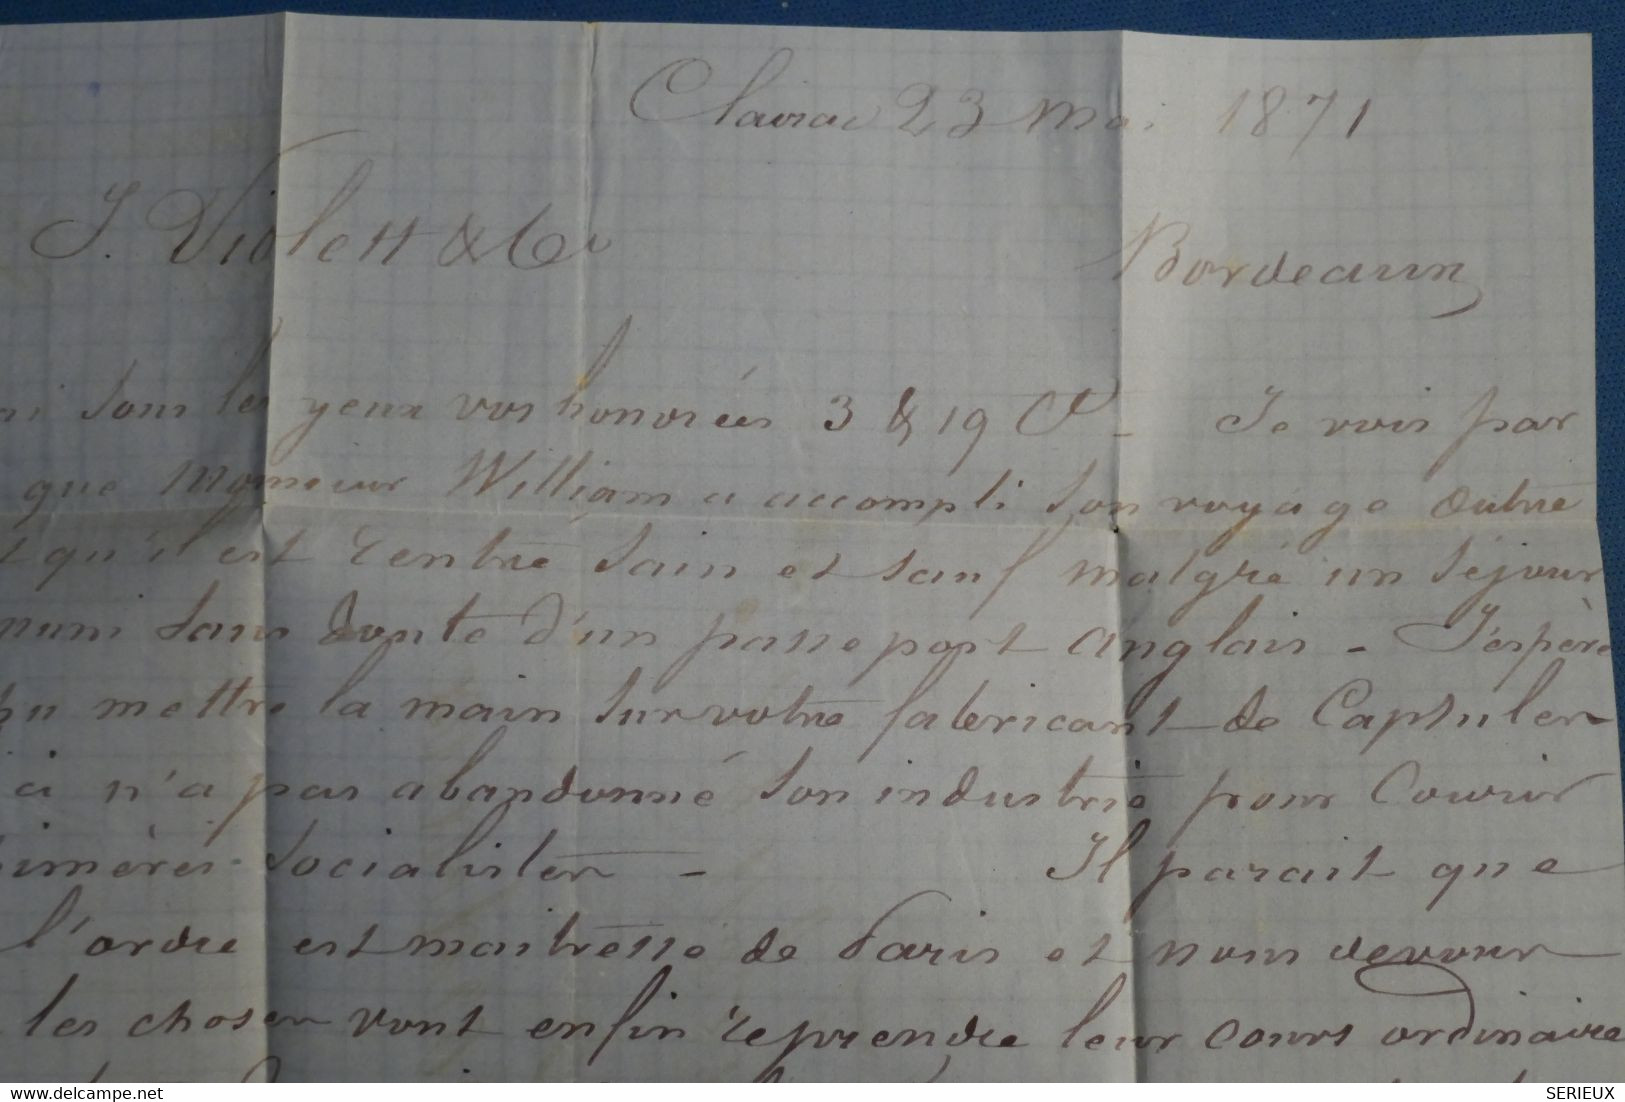 Clairac 23 Mai 1871
J. Violett & Cie Bordeaux
sous les yeux vos honorées 3 & 19 Ct - Je vois par
que Monsieur William a accompli son voyage Outre
qu'il est rentré sain et sauf malgré un séjour
muni sans doute d'un passeport anglais - J'espère
pu mettre la main sur votre fabricant de Capsules
ci n'a pas abandonné son industrie pour Courir
Socialistes - Il parait que
l'ordre est maitresse de Paris et nous devons
les choses vont enfin reprendre leur cours ordinaire
delcampe.net
SERIEUX